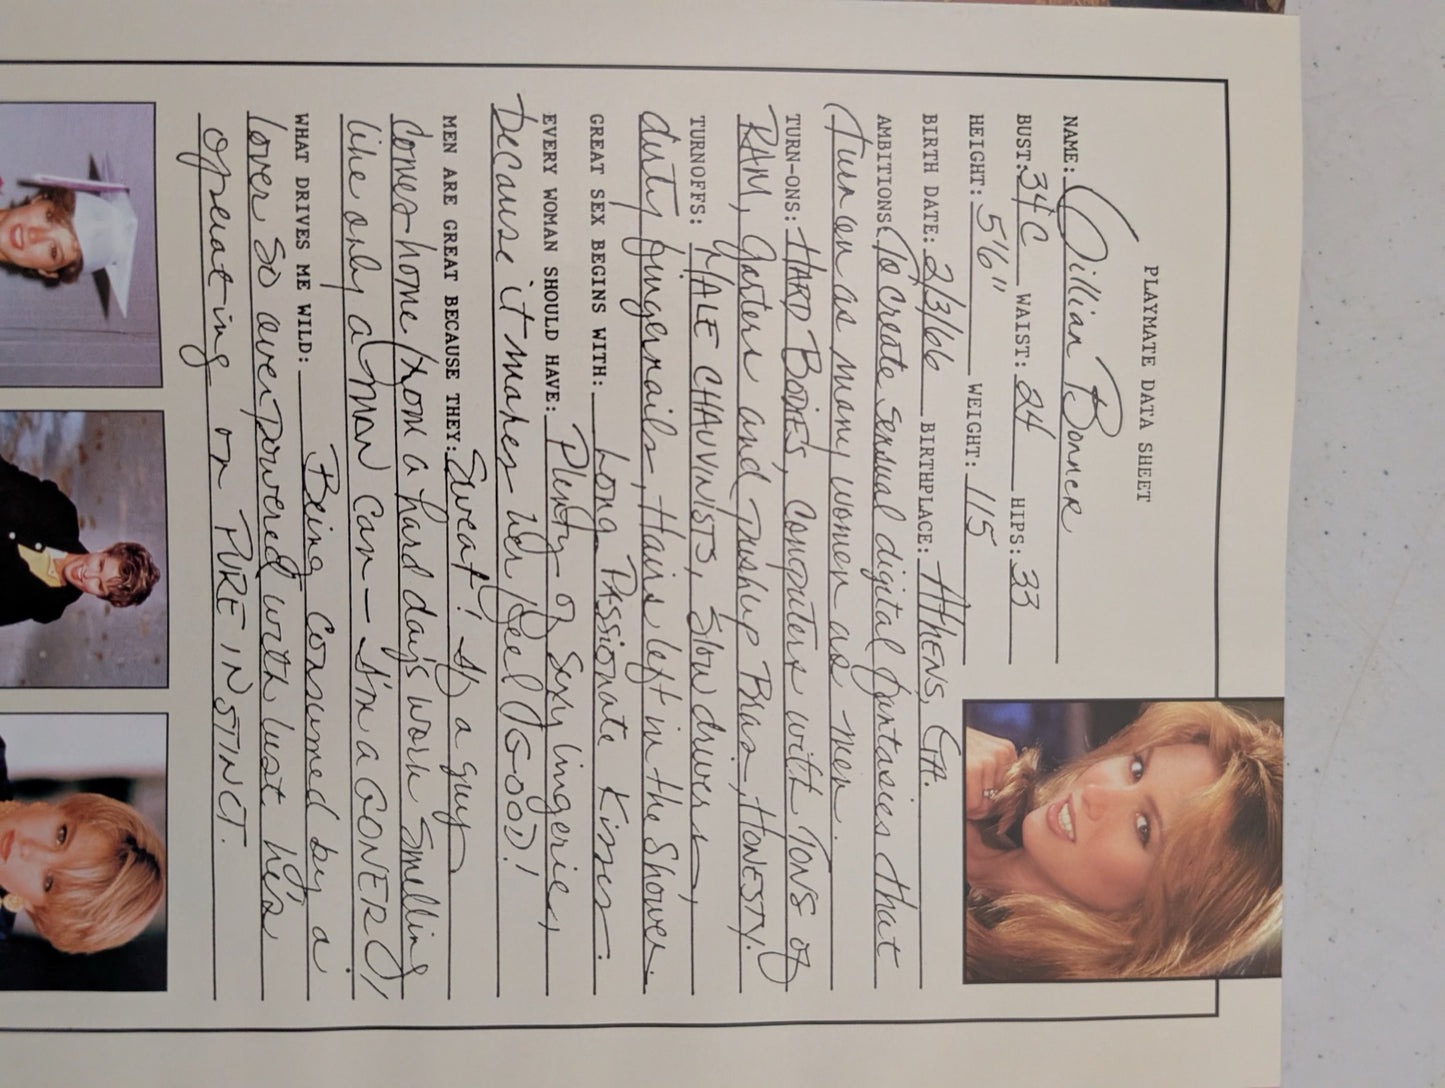 PLAYMATE DATA SHEET
NAME: Jillian Bonner
BUST: 34C WAIST: 24 HIPS: 33
HEIGHT: 5'6" WEIGHT: 115
BIRTH DATE: 2/3/66 BIRTHPLACE: AtHENS, GA.
AMBITIONS: To create sensual digital fantasies that
turn on as many women as men.
TURN-ONS: HARD BODIES, Computers with TONS of
RAM, Garters and Pushup Bras, HONESTY.
TURNOFFS: MALE CHAUVINISTS, Slow drivers,
dirty fingernails, Hairs left in the Shower.
GREAT SEX BEGINS WITH: Long PASSIONATE Kisses.
EVERY WOMAN SHOULD HAVE: Plenty of Sexy lingerie,
because it makes her feel GOOD!
MEN ARE GREAT BECAUSE THEY: Sweat! If a guy
comes home from a hard day's work smelling
like only a man can - I'm a GONER!
WHAT DRIVES ME WILD: Being consumed by a
lover so overpowered with lust he's
operating on PURE INSTINCT.